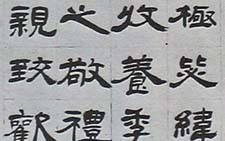 極毖緯
收養季
之敬禮
親致歡